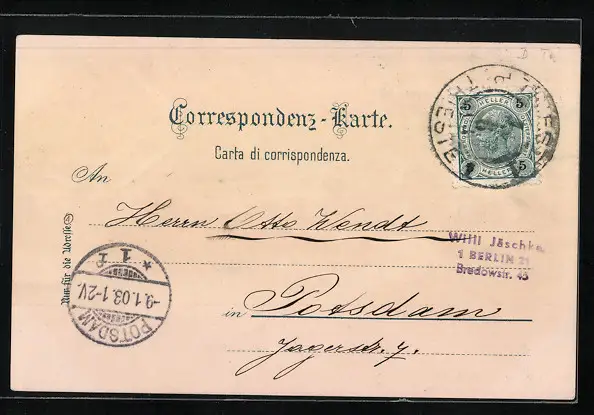 Correspondenz-Karte.
Carta di corrispondenza.
5 HELLER 5
5 HELLER 5
TRIESTE
TRIEST
An
Herrn Otto Wendt
Nur für die Adresse
Willi Jäschke
1 BERLIN 21
Bredowstr. 45
* 1 f
-9.1.03.1-2V.
POTSDAM
in Potsdam
Jägerstr. 7.